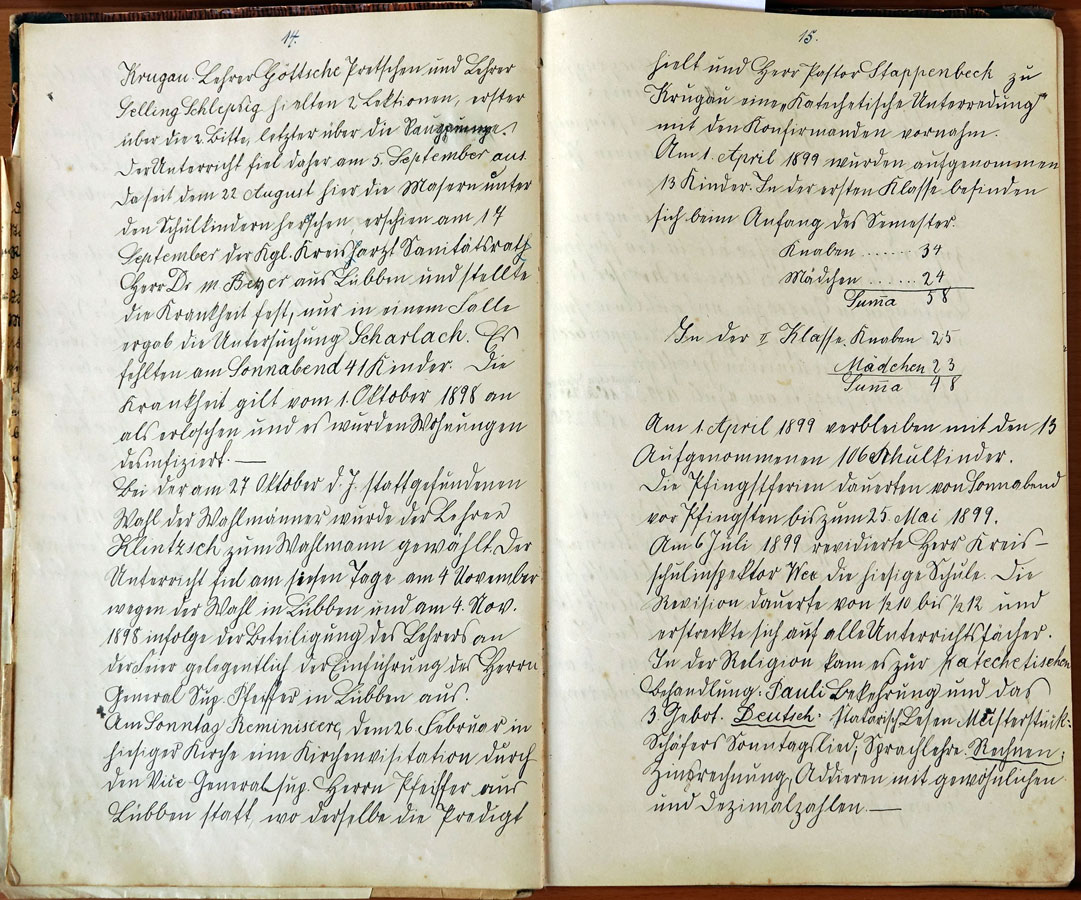 14.
Krugau. Lehrer Göttsche Pretschen und Lehrer
Selling Schlepzig hielten 2 Lektionen, erster
über die 2. Bitte, letzter über die
Der Unterricht fiel daher am 5. September aus.
Da seit dem 22 August hier die Masern unter
den Schulkindern herschen, erschien am 17
September der Kgl. Kreisharzt Sanitätsrath
Herr Dr m Beyer aus Lübben und stellte
die Krankheit fest, nur in einem Falle
ergab die Untersuchung Scharlach. Es
fehlten am Sonnabend 41 Kinder. Die
Krankheit gilt vom 1. Oktober 1898 an
als erloschen und es wurden Wohnungen
desinfiziert. —
Bei der am 27 Oktober d. J. stattgefundenen
Wahl der Wahlmänner wurde der Lehrer
Klintzsch zum Wahlmann gewählt. Der
Unterricht fiel am Tage am 4 November
wegen der Wahl in Lübben und am 4. Nov.
1898 infolge der Beteiligung des Lehrers an
der Feier gelegentlich der Einführung des Herrn
General Sup. Pfeiffer in Lübben aus.
Am Sonntag Reminiscere, dem 26. Februar in
hiesiger Kirche eine Kirchenvisitation durch
den Vice-Generalsup. Herrn Pfeiffer aus
Lübben statt, wo derselbe die Predigt
15.
hielt und Herr Pastor Stappenbeck zu
Krugau eine „Katechetische Unterredung"
mit den Konfirmanden vornahm.
Am 1. April 1899 wurden aufgenommen
13 Kinder. In der ersten Klasse befinden
sich beim Anfang des Semester.
Knaben ........ 34
Mädchen ...... 24
Suma 58
In der II Klasse Knaben 25
Mädchen 23
Suma 48
Am 1. April 1899 verbleiben mit den 13
Aufgenommenen 106 Schulkinder.
Die Pfingstferien dauerten von Sonnabend
vor Pfingsten bis zum 25. Mai 1899.
Am 6 Juli 1899 revidierte Herr Kreis-
schulinspektor die hiesige Schule. Die
Revision dauerte von ½10 bis ½12 und
erstreckte sich auf alle Unterrichtsfächer.
In der Religion kam es zur katechetischen
Behandlung: Pauli Bekehrung und das
3 Gebot. Deutsch: statarisch Lesen Musterstück:
Schäfers Sonntagslied; Sprachlehre. Rechnen:
Zinsrechnung, Addieren mit gewöhnlichen
und Dezimalzahlen. —